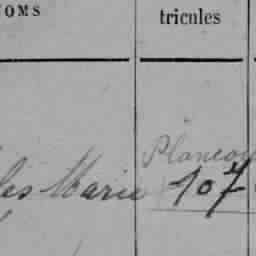 OMS
tricules
Plancoy
les Marie 107